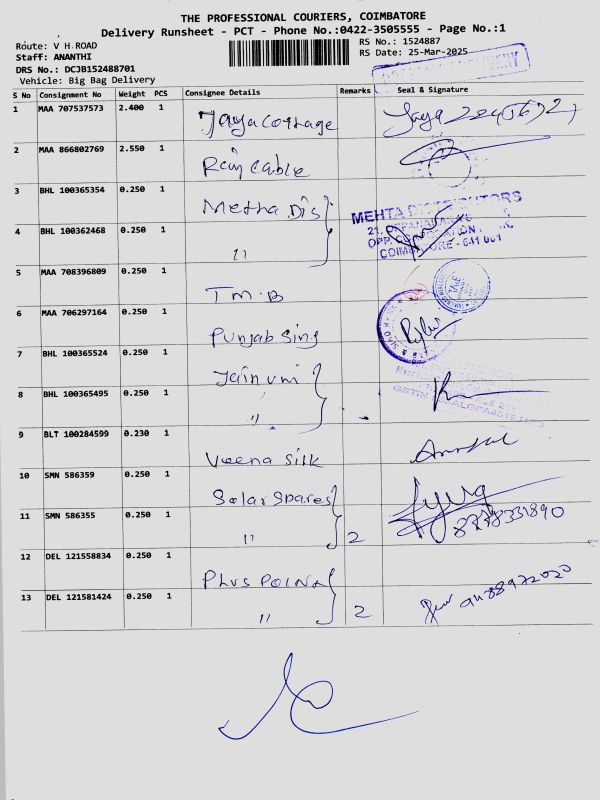 THE PROFESSIONAL COURIERS, COIMBATORE
Delivery Runsheet - PCT - Phone No.:0422-3505555 - Page No.:1
Route: V H ROAD
RS No.: 1524887
Staff: ANANTHI
RS Date: 25-Mar-2025
DRS No.: DCJB152488701
Vehicle: Big Bag Delivery
DELIVERY
S No Consignment No Weight PCS Consignee Details Remarks Seal & Signature
1 MAA 707537573 2.400 1 Jaya Cottage Jaya
2 MAA 866802769 2.550 1 Rainy Cable
3 BHL 100365354 0.250 1 Metha Dis
MEHTA DISTRIBUTORS
4 BHL 100362468 0.250 1 "
COIMBATORE - 641 001
5 MAA 708396809 0.250 1 T M B
6 MAA 706297164 0.250 1 Punjab Sing
7 BHL 100365524 0.250 1 Jain uni
8 BHL 100365495 0.250 1 "
9 BLT 100284599 0.230 1 Veena Silk
10 SMN 586359 0.250 1 Solar Spares
11 SMN 586355 0.250 1 " 2 8278331890
12 DEL 121558834 0.250 1 Plus Point
13 DEL 121581424 0.250 1 " 2